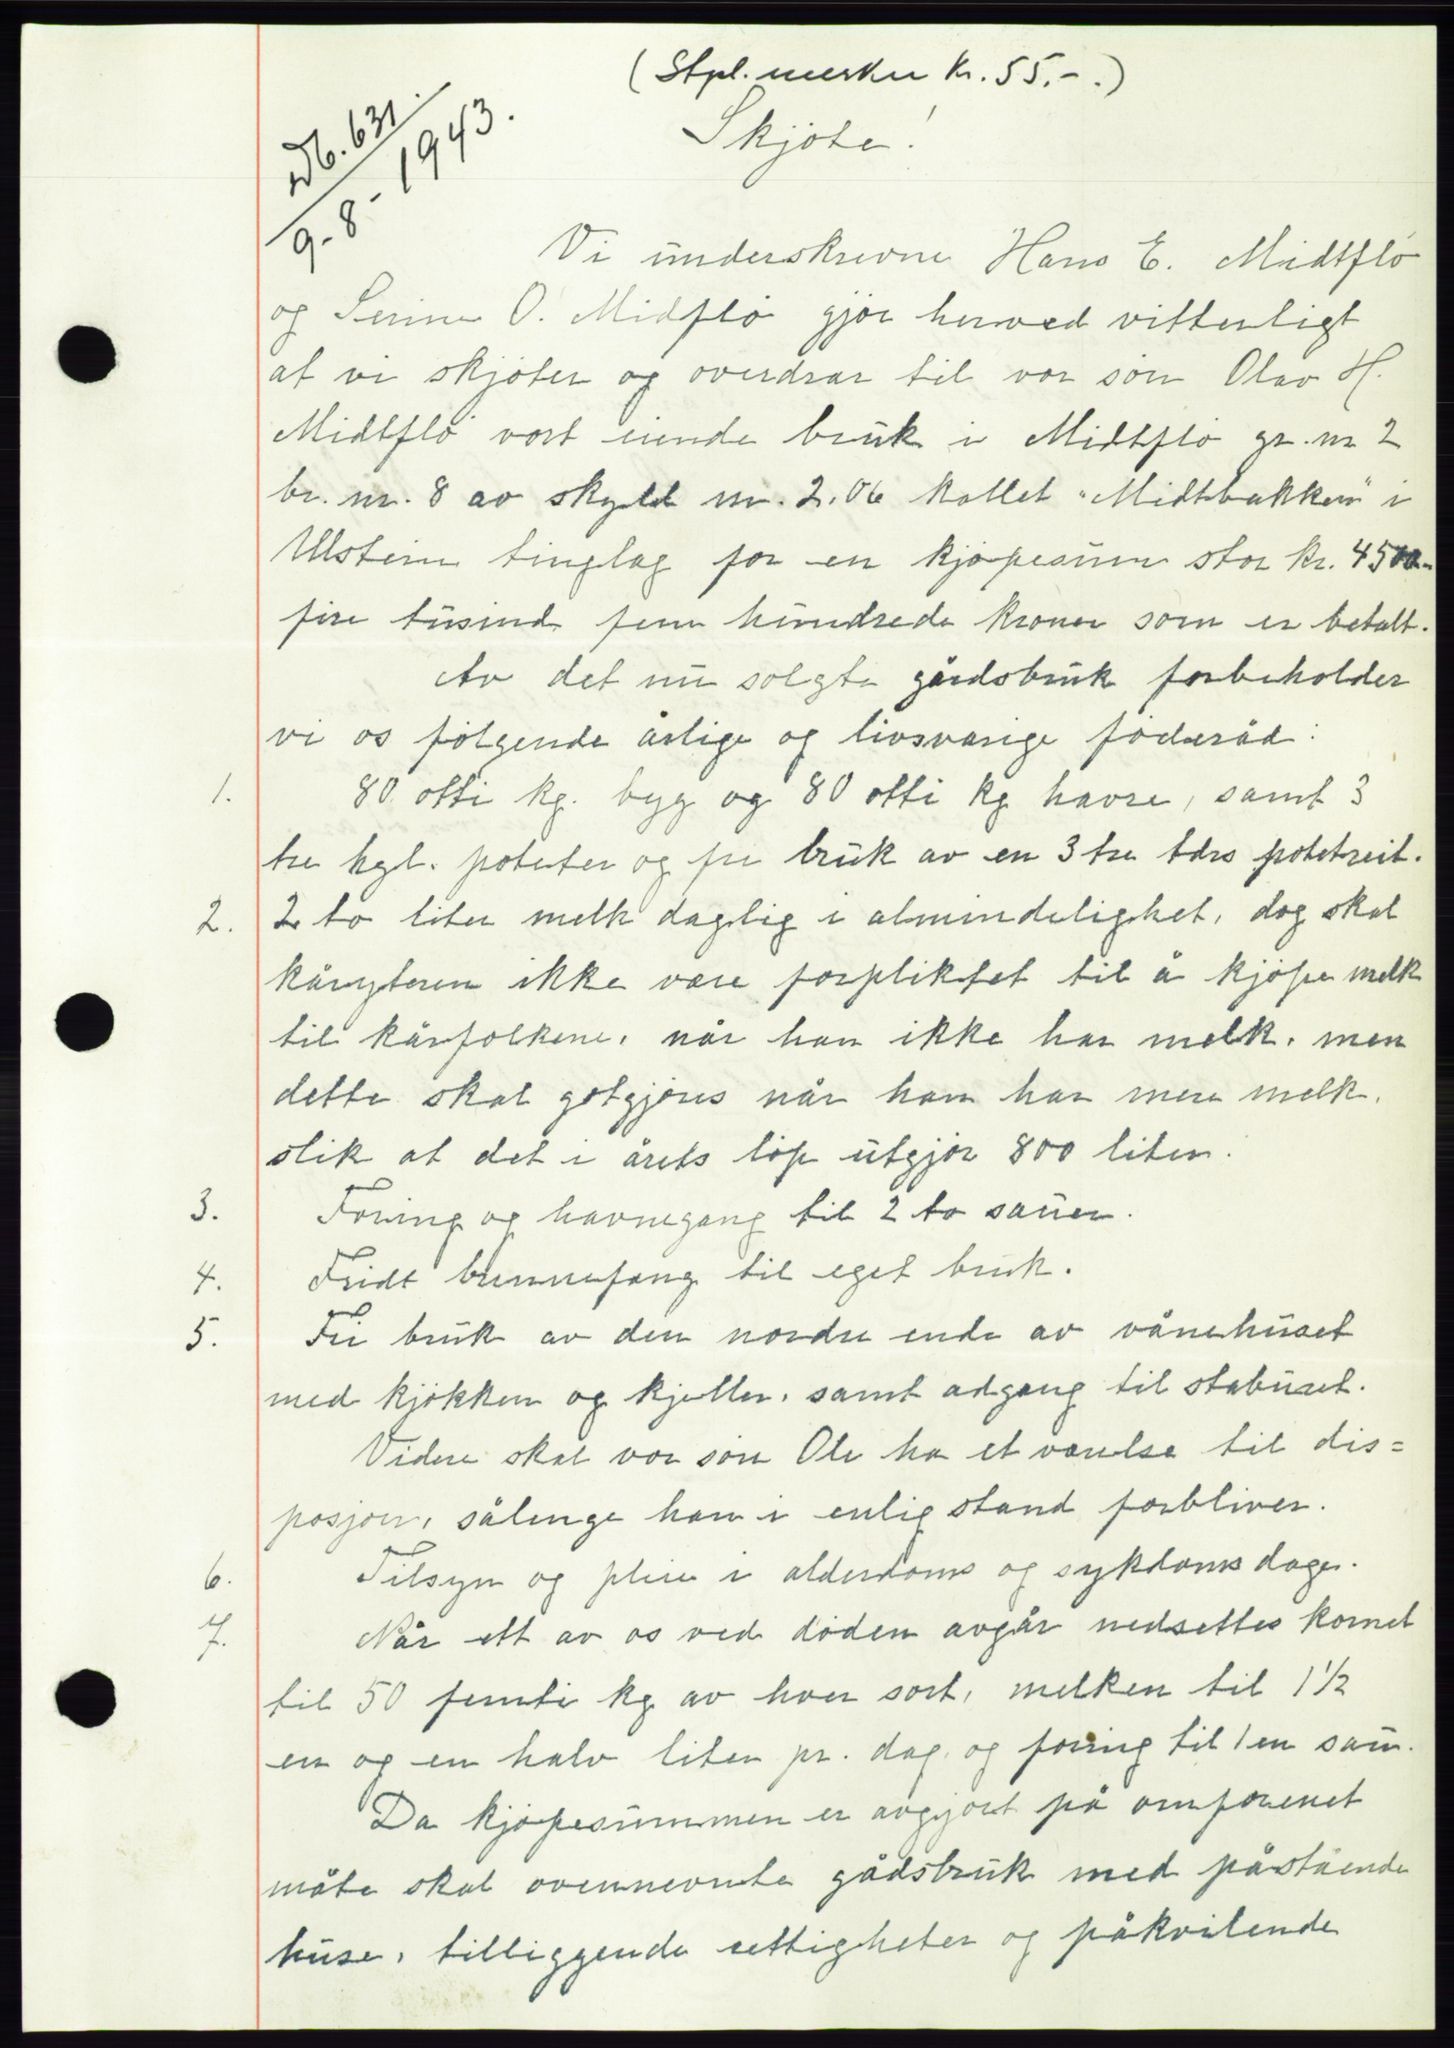 (Stpl. merker kr. 55.-.)
Db. 631.
9-8-1943.
Skjöte!
Vi underskrevne Hans E. Midtflö
og Serine O. Midflö gjör herved vitterligt
at vi skjöter og overdrar til vor sön Olav H.
Midtflö vort eiende bruk i Midtflö gr. nr 2
br. nr. 8 av skyld m. 2.06 kallet "Midtbakken" i
Ulstein tinglag for en kjöpesum stor kr. 4500.-
fire tusind fem hundrede kroner som er betalt.
Av det nu solgte gårdsbruk forbeholder
vi os fölgende årlige og livsvarige föderåd:
1. 80 otti kg. byg og 80 otti kg havre, samt 3
tre hgl. poteter og fri bruk av en 3 tre tdrs potetreit.
2. 2 to liter melk daglig i almindelighet, dog skal
kåryteren ikke være forpliktet til å kjöpe melk
til kårfolkene, når han ikke har melk, men
dette skal gotgjöres når han har mere melk,
slik at det i årets löp utgjör 800 liter.
3. Foring og havnegang til 2 to sauer.
4. Fridt brennefang til eget bruk.
5. Fri bruk av den nordre ende av vånehuset
med kjökken og kjeller, samt adgang til staburet.
Videre skal vor sön Ole ha et værelse til dis=
posjon, sålenge han i enlig stand forbliver.
6. Tilsyn og pleie i alderdoms og sykdoms dage.
7. Når ett av os ved döden avgår nedsettes kornet
til 50 femti kg av hver sort, melken til 1 1/2
en og en halv liter pr. dag, og foring til 1 en sau.
Da kjöpesummen er avgjort på omforenet
måte skal ovennevnte gådsbruk med påstående
huse, tilliggende rettigheter og påkvilende